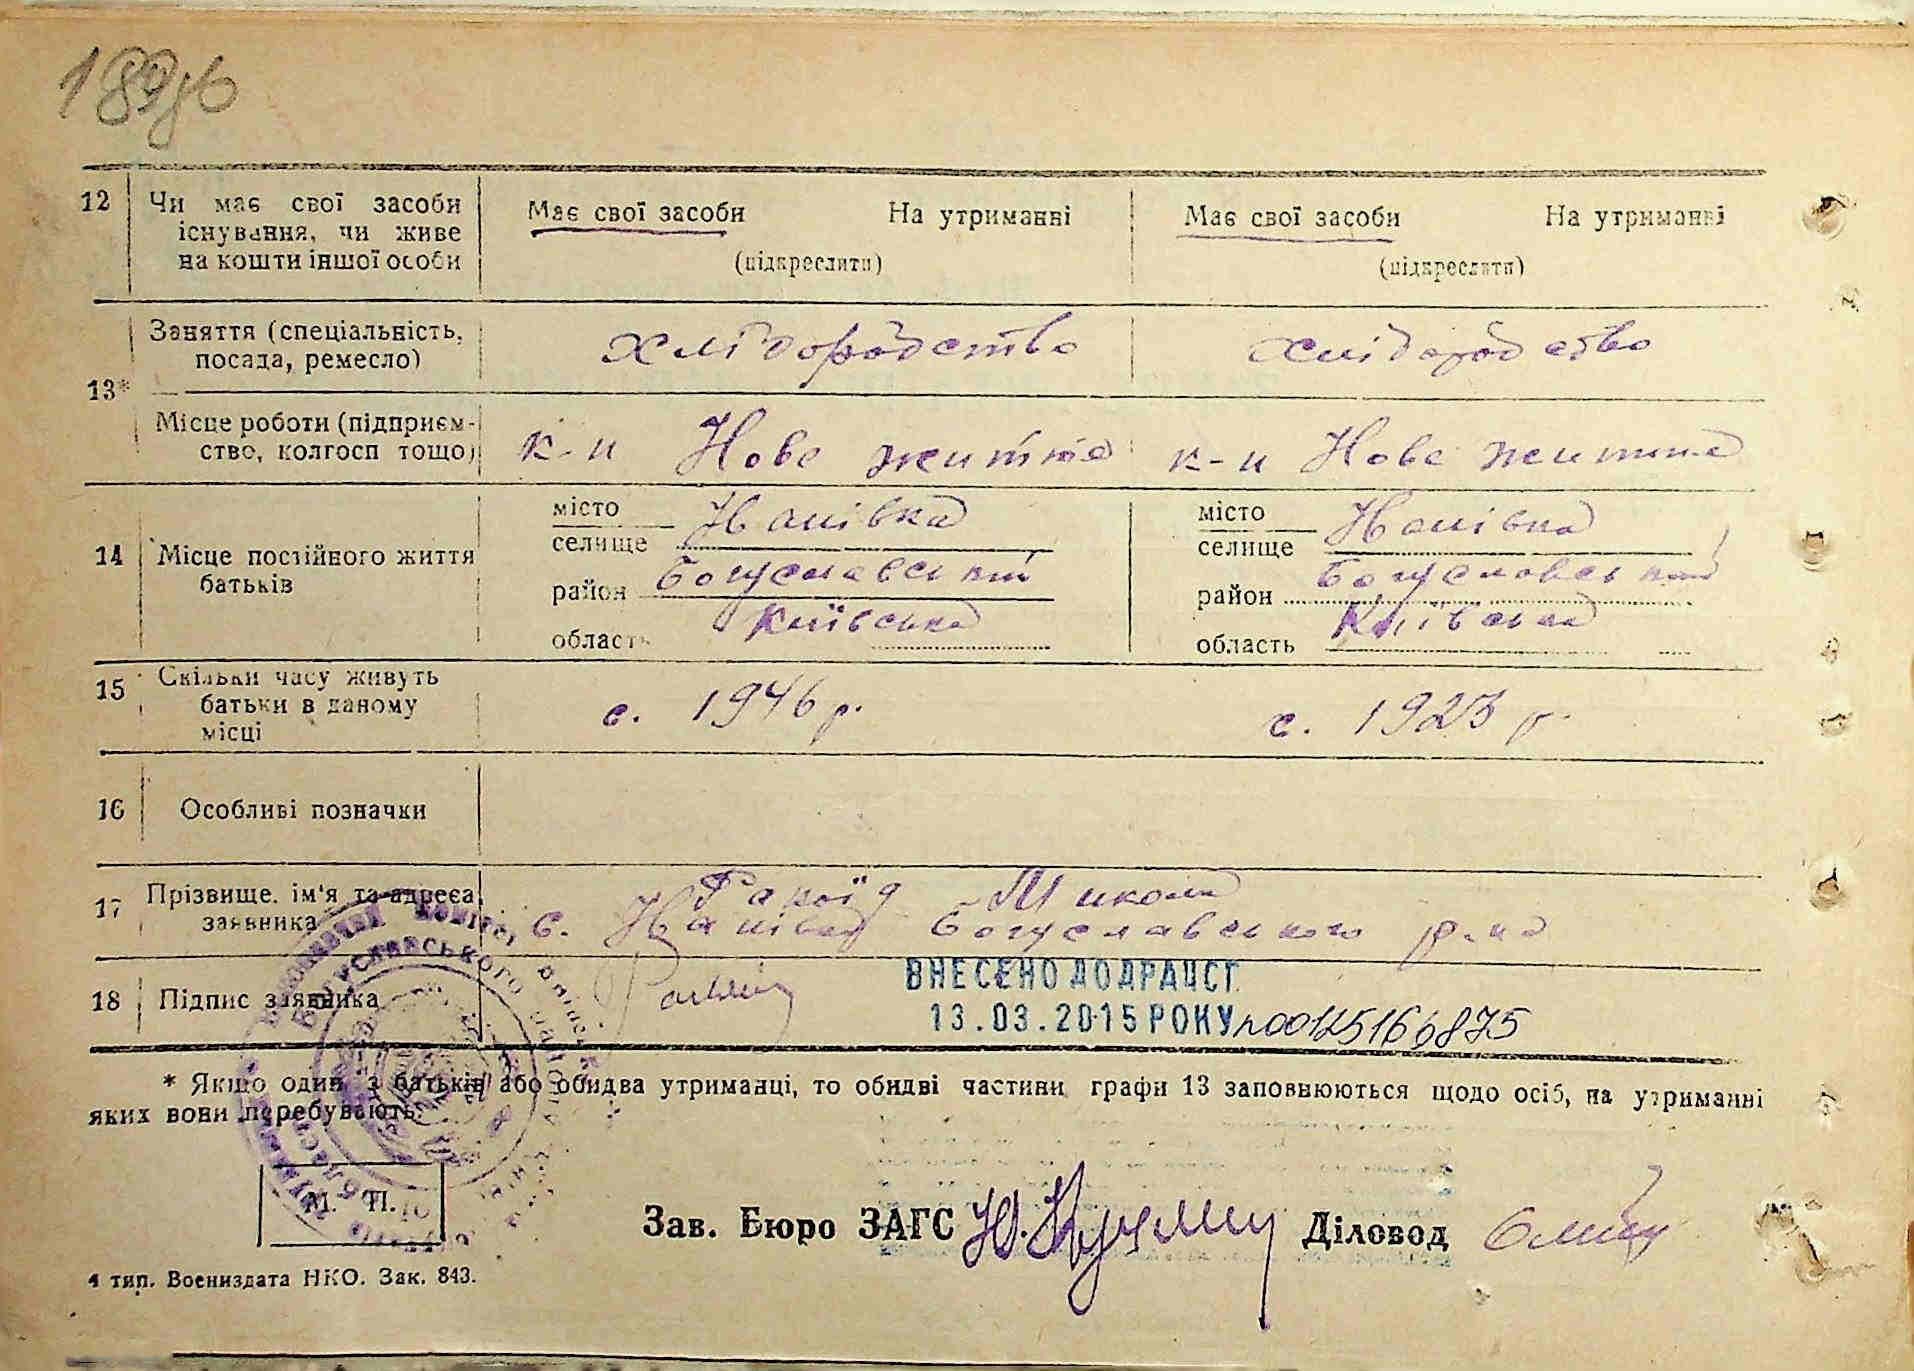 189 зв
12 Чи має свої засоби існування, чи живе на кошти іншої особи
Має свої засоби На утриманні
(підкреслити)
Має свої засоби На утриманні
(підкреслити)
13*
Заняття (спеціальність, посада, ремесло)
хліборобство хліборобство
Місце роботи (підприємство, колгосп тощо)
к-п Нове життя к-п Нове життя
14 Місце постійного життя батьків
місто
селище
район Богуславський
область Київська
місто
селище
район Богуславський
область Київська
15 Скільки часу живуть батьки в даному місці
с. 1946 р. с. 1923 р.
16 Особливі позначки
17 Прізвище, ім'я та адреса заявника
Микола
с. Богуславського р-на
18 Підпис заявника
ВНЕСЕНО ДО ДРАЦСГ
13.03.2015 РОКУ 00125166875
* Якщо один з батьків або обидва утриманці, то обидві частини графи 13 заповнюються щодо осіб, на утриманні
яких вони перебувають.
М. П.
Зав. Бюро ЗАГС Діловод
4 тип. Воениздата НКО. Зак. 843.